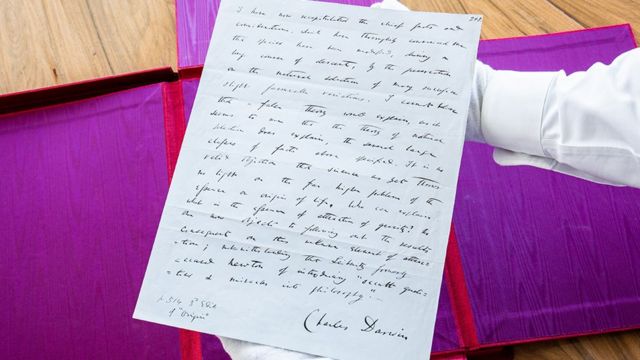 I have now recapitulated the chief facts and
considerations, which have thoroughly convinced me
that species have been modified, during a
long course of descent, by the preservation
or the natural selection of many successive
slight favourable variations. I cannot believe
that a false theory would explain, as it
seems to me that the theory of natural
selection does explain, the several large
classes of facts above specified. It is no
valid objection that science as yet throws
no light on the far higher problem of the
essence or origin of life. Who can explain
what is the essence of attraction of gravity? No
one now objects to following out the results
consequent on this unknown element of attrac-
-tion; notwithstanding that Leibnitz formerly
accused Newton of introducing "occult quali-
-ties & miracles into philosophy".
Charles Darwin
p. 514 3d Edit
of "Origin"